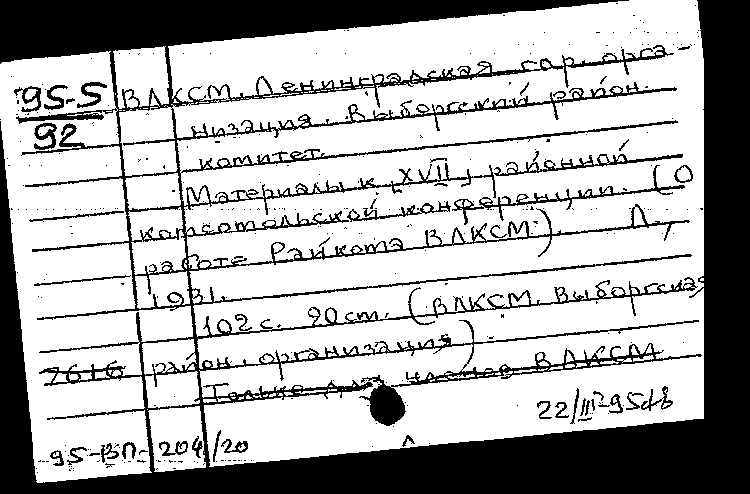 95-5
92
ВЛКСМ. Ленинградская гор. орга-
низация. Выборгский район.
комитет.
Материалы к [XVII] районной
комсомольской конференции. (О
работе Райкома ВЛКСМ). Л.,
1931.
102 с. 20 см. (ВЛКСМ. Выборгская
район. организация).
7616
Только для членов ВЛКСМ
22/III
95-ВП-204/20